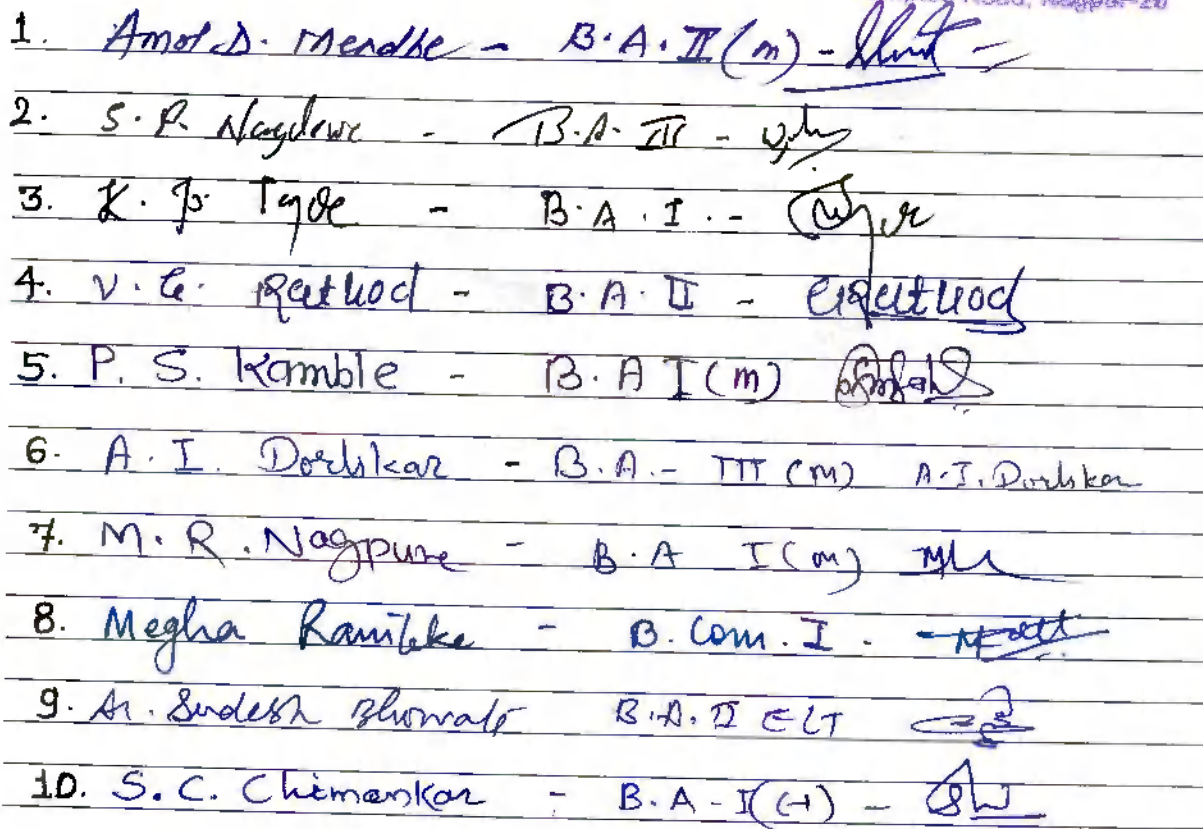 Road, Nagpur-20
1. Amol D. Mendhe - B.A. II (m) -
2. S. P. Nagdewe - B.A. III -
3. K. P. Tayde - B.A. I. -
4. V. G. Rathod - B.A. II - Rathod
5. P. S. Kamble - B.A I (m)
6. A. I. Dorlikar - B.A. - III (m) A. I. Dorlikar
7. M. R. Nagpure - B.A I (m)
8. Megha - B. Com. I -
9. Sudesh B.A. II ELT
10. S. C. Chimankar - B.A - I (H) -